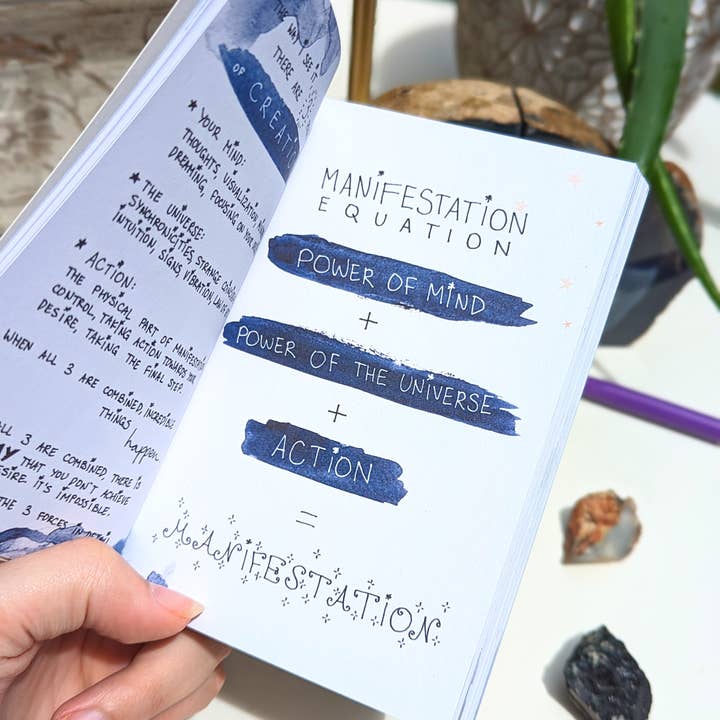 THE WAY I SEE IT
THERE ARE
OF CREATI
★ YOUR MIND:
THOUGHTS, VISUALIZATION,
DREAMING, FOCUSING ON
★ THE UNIVERSE:
SYNCHRONICITIES, STRANGE
INTUITION, SIGNS, VIBRATION,
★ ACTION:
THE PHYSICAL PART OF MANIFESTATI
CONTROL, TAKING ACTION TOWARDS
DESIRE, TAKING THE FINAL STEP.
WHEN ALL 3 ARE COMBINED, INCREDIBLE
THINGS happen
ALL 3 ARE COMBINED, THERE IS
THAT YOU DON'T ACHIEVE
DESIRE. IT'S IMPOSSIBLE.
THE 3 FORCES IN DETAIL
MANIFESTATION
EQUATION
POWER OF MIND
+
POWER OF THE UNIVERSE
+
ACTION
=
MANIFESTATION